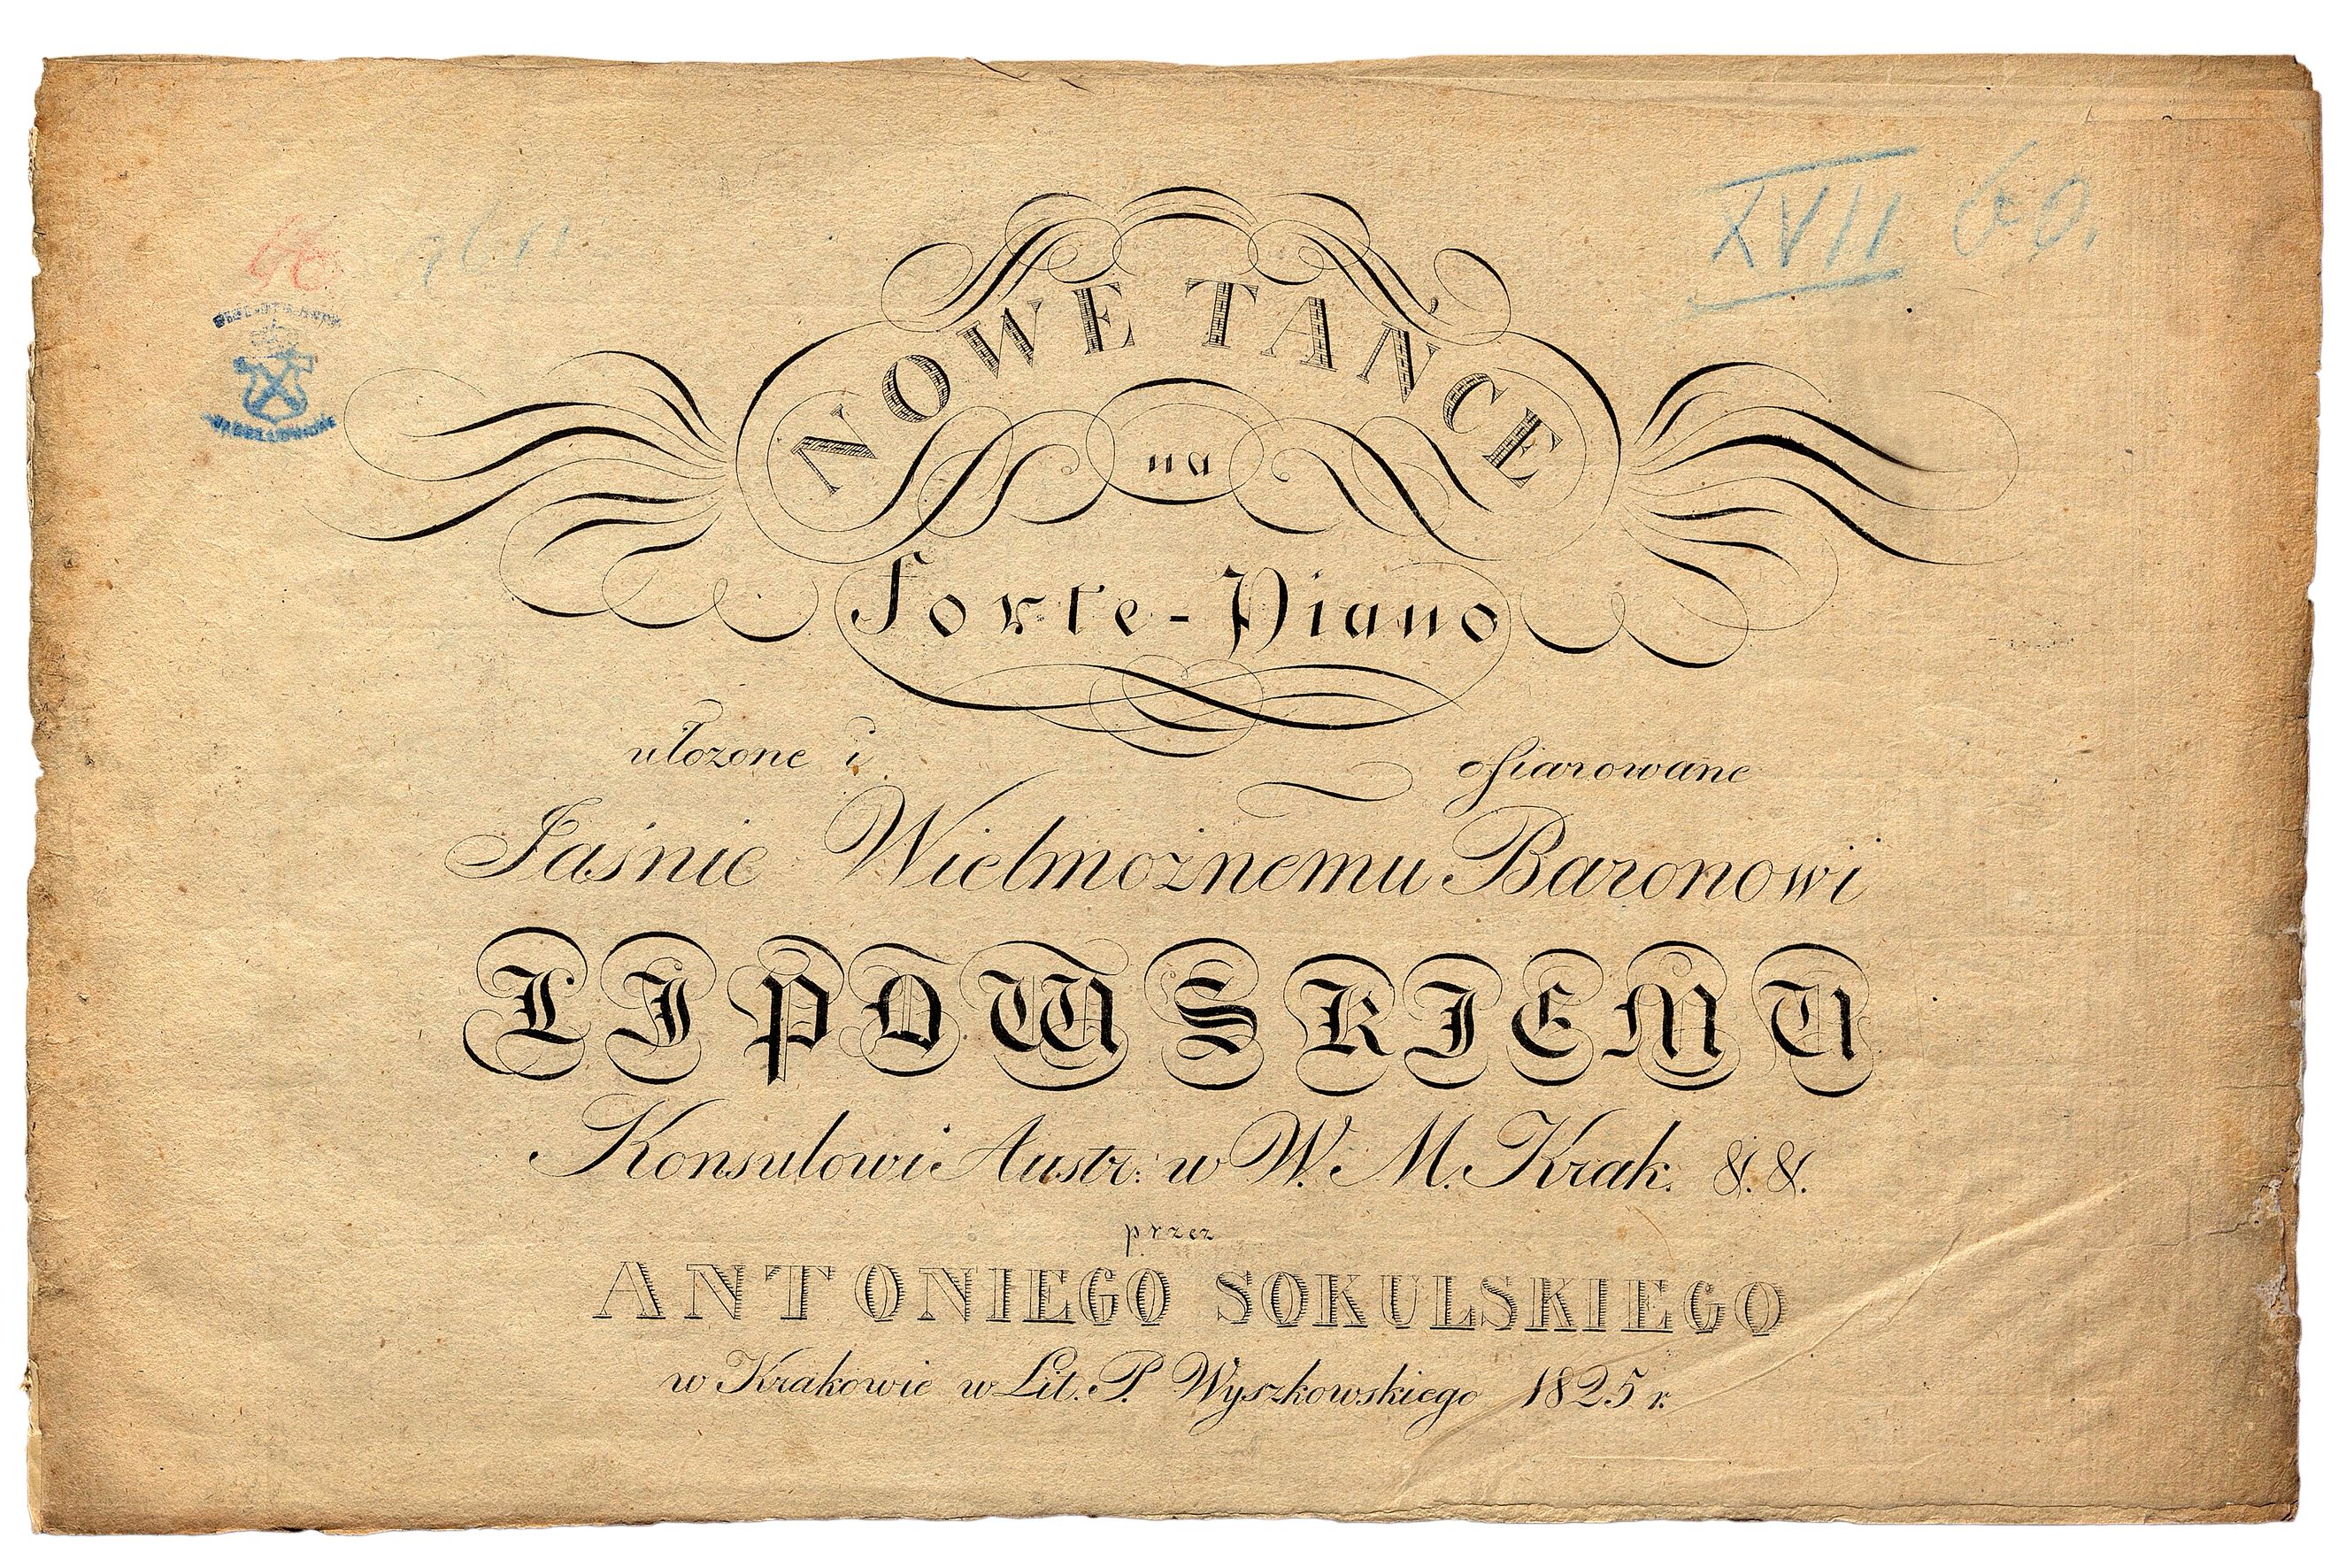 XVII 60.
NOWE TAŃCE
na
Forte-Piano
ułozone i ofiarowane
Jaśnie Wielmoznemu Baronowi
LIPOWSKIEMU
Konsulowi Austr: w W. M. Krak. &. &.
przez
ANTONIEGO SOKULSKIEGO
w Krakowie w Lit. P. Wyszkowskiego 1825 r.